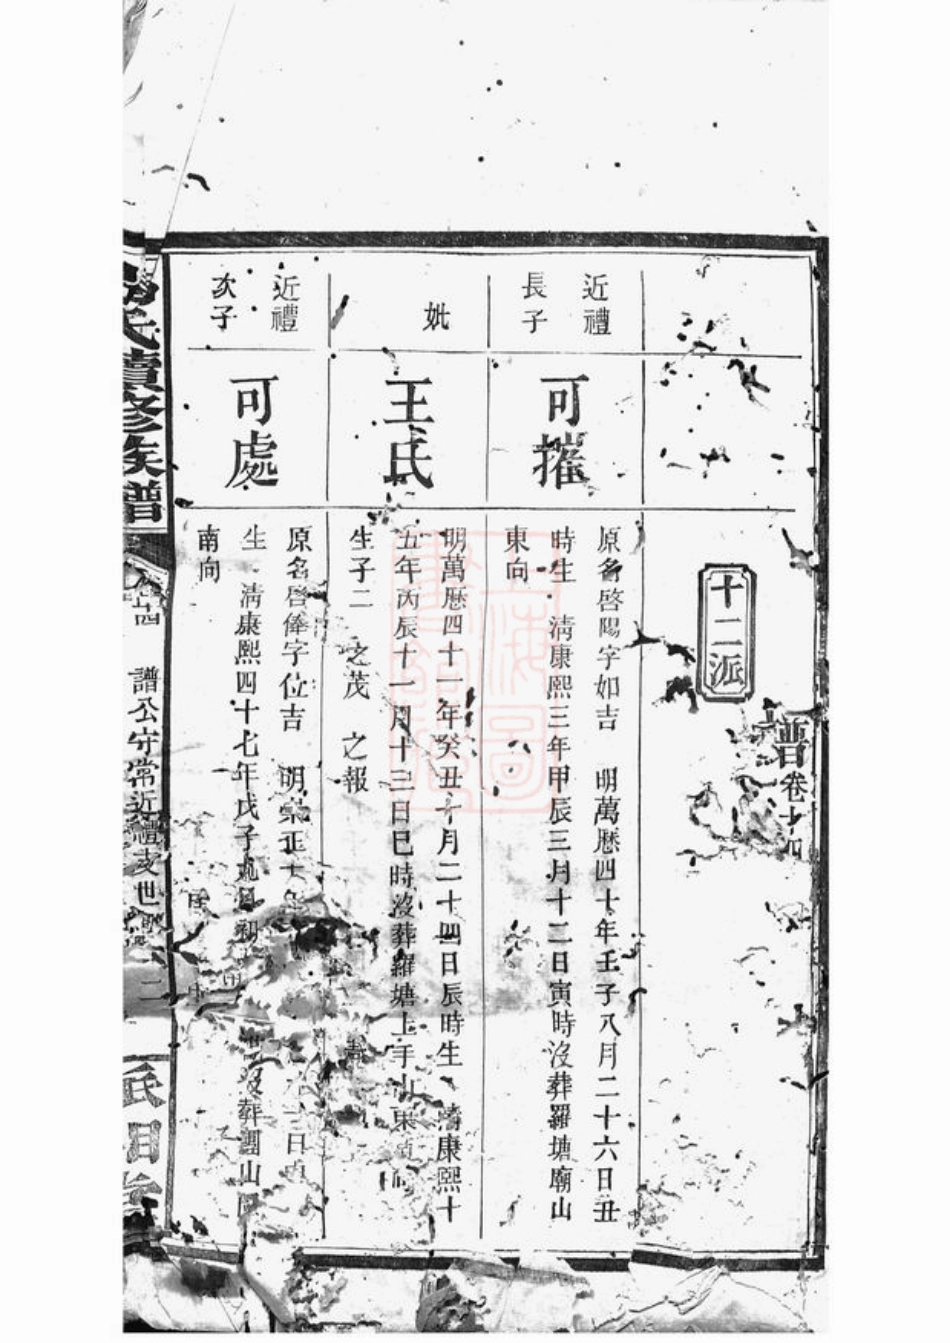 譜卷十四
十二派
近禮
長子
可摧
原名啓陽字如吉　明萬厯四十年壬子八月二十六日丑
時生　清康熙三年甲辰三月十二日寅時沒葬羅塘廟山
東向
妣
王氏
明萬厯四十一年癸丑十月二十四日辰時生　清康熙十
五年丙辰十一月十三日巳時沒葬羅塘上手山東
生子二　之茂　之報
近禮
次子
可處
原名啓俸字位吉　明崇正十年
生　清康熙四十七年戊子 初 沒葬團山
南向
氏續修族譜
卷十四
譜公守常近禮支世
二
上海圖書館藏